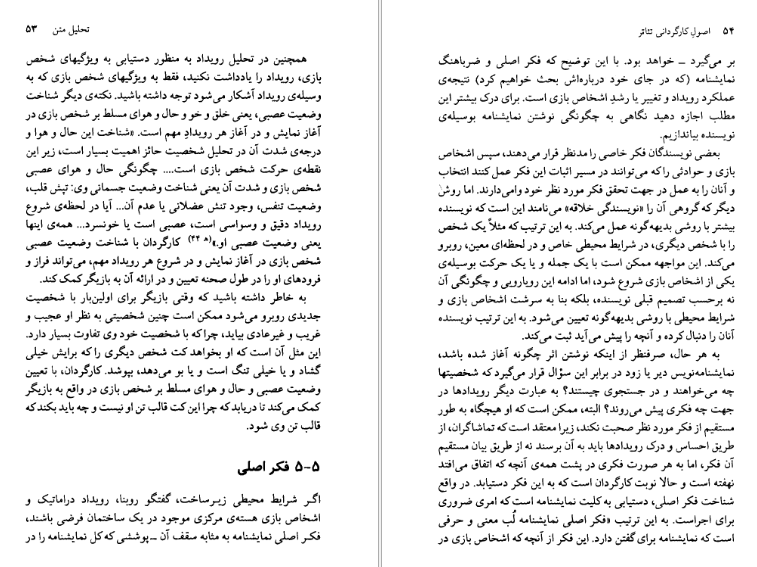 تحلیل متن ۵۳
همچنین در تحلیل رویداد به منظور دستیابی به ویژگیهای شخص
بازی، رویداد را یادداشت نکنید، فقط به ویژگیهای شخص بازی که به
وسیله‌ی رویداد آشکار می‌شود توجه داشته باشید. نکته‌ی دیگر شناخت
وضعیت عصبی، یعنی خلق و خو و حال و هوای مسلط بر شخص بازی در
آغاز نمایش و در آغاز هر رویداد مهم است. «شناخت این حال و هوا و
درجه‌ی شدت آن در تحلیل شخصیت حائز اهمیت بسیار است، زیر این
نقطه‌ی حرکت شخص بازی است.... چگونگی حال و هوای عصبی
شخص بازی و شدت آن یعنی شناخت وضعیت جسمانی وی: تپش قلب،
وضعیت تنفس، وجود تنش عضلانی یا عدم آن... آیا در لحظه‌ی شروع
رویداد دقیق و وسواسی است، عصبی است یا خونسرد... همه‌ی اینها
یعنی وضعیت عصبی او.»(ه ۴۴) کارگردان با شناخت وضعیت عصبی
شخص بازی در آغاز نمایش و در شروع هر رویداد مهم، می‌تواند فراز و
فرودهای او را در طول صحنه تعیین و در ارائه آن به بازیگر کمک کند.
به خاطر داشته باشید که وقتی بازیگر برای اولین‌بار با شخصیت
جدیدی روبرو می‌شود ممکن است چنین شخصیتی به نظر او عجیب و
غریب و غیرعادی بیاید، چرا که با شخصیت خود وی تفاوت بسیار دارد.
این مثل آن است که او بخواهد کت شخص دیگری را که برایش خیلی
گشاد و یا خیلی تنگ است و یا بو می‌دهد، بپوشد. کارگردان، با تعیین
وضعیت عصبی و حال و هوای مسلط بر شخص بازی در واقع به بازیگر
کمک می‌کند تا دریابد که چرا این کت قالب تن او نیست و چه باید بکند که
قالب تن وی شود.
۵-۵ فکر اصلی
اگر شرایط محیطی زیرساخت، گفتگو روبنا، رویداد دراماتیک و
اشخاص بازی هسته‌ی مرکزی موجود در یک ساختمان فرضی باشند،
فکر اصلی نمایشنامه به مثابه سقف آن ــ پوششی که کل نمایشنامه را در
۵۴ اصول کارگردانی تئاتر
بر می‌گیرد ــ خواهد بود. با این توضیح که فکر اصلی و ضرباهنگ
نمایشنامه (که در جای خود درباره‌اش بحث خواهیم کرد) نتیجه‌ی
عملکرد رویداد و تغییر یا رشد اشخاص بازی است. برای درک بیشتر این
مطلب اجازه دهید نگاهی به چگونگی نوشتن نمایشنامه بوسیله‌ی
نویسنده بیاندازیم.
بعضی نویسندگان فکر خاصی را مدنظر قرار می‌دهند، سپس اشخاص
بازی و حوادثی را که می‌توانند در مسیر اثبات این فکر عمل کنند انتخاب
و آنان را به عمل در جهت تحقق فکر مورد نظر خود وامی‌دارند. اما روش
دیگر که گروهی آن را «نویسندگی خلاقه» می‌نامند این است که نویسنده
بیشتر با روشی بدیهه‌گونه عمل می‌کند. به این ترتیب که مثلاً یک شخص
را با شخص دیگری، در شرایط محیطی خاص و در لحظه‌ای معین، روبرو
می‌کند. این مواجهه ممکن است با یک جمله و یا یک حرکت بوسیله‌ی
یکی از اشخاص بازی شروع شود، اما ادامه این رویارویی و چگونگی آن
نه برحسب تصمیم قبلی نویسنده، بلکه بنا به سرشت اشخاص بازی و
شرایط محیطی با روشی بدیهه‌گونه تعیین می‌شود. به این ترتیب نویسنده
آنان را دنبال کرده و آنچه را پیش می‌آید ثبت می‌کند.
به هر حال، صرفنظر از اینکه نوشتن اثر چگونه آغاز شده باشد،
نمایشنامه‌نویس دیر یا زود در برابر این سؤال قرار می‌گیرد که شخصیتها
چه می‌خواهند و در جستجوی چیستند؟ به عبارت دیگر رویدادها در
جهت چه فکری پیش می‌روند؟ البته، ممکن است که او هیچگاه به طور
مستقیم از فکر مورد نظر صحبت نکند، زیرا معتقد است که تماشاگران، از
طریق احساس و درک رویدادها باید به آن برسند نه از طریق بیان مستقیم
آن فکر، اما به هر صورت فکری در پشت همه‌ی آنچه که اتفاق می‌افتد
نهفته است و حالا نوبت کارگردان است که به این فکر دستیابد. در واقع
شناخت فکر اصلی، دستیابی به کلیت نمایشنامه است که امری ضروری
برای اجراست. به این ترتیب «فکر اصلی نمایشنامه لُب معنی و حرفی
است که نمایشنامه برای گفتن دارد. این فکر از آنچه که اشخاص بازی در